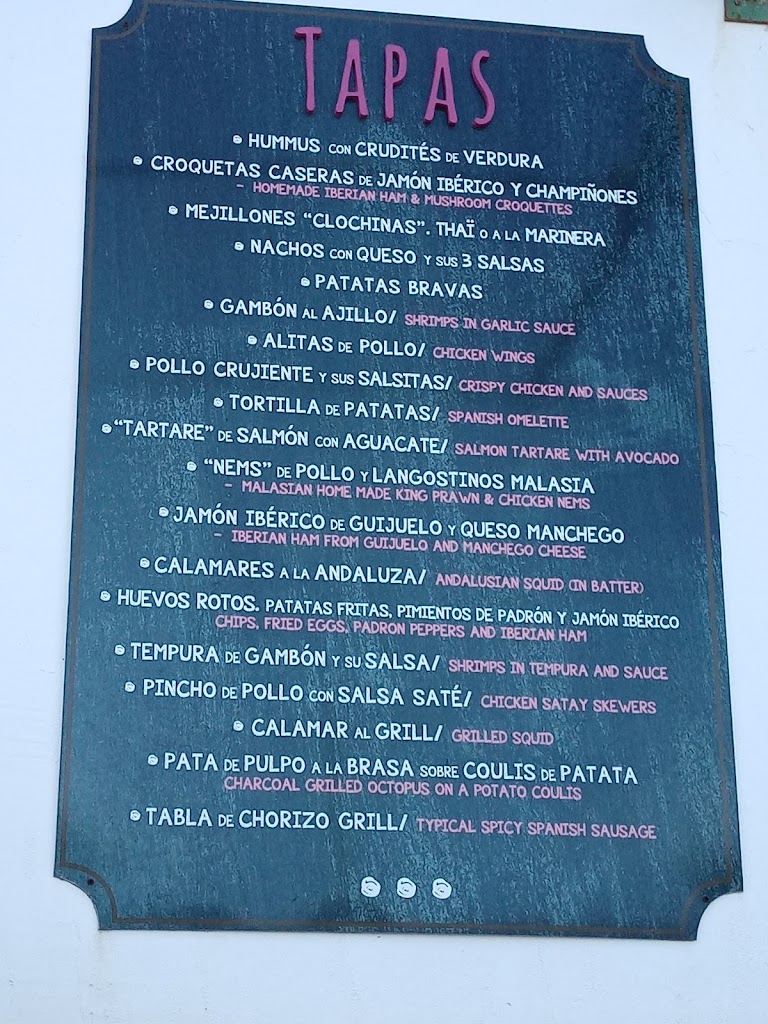 TAPAS
HUMMUS CON CRUDITÉS DE VERDURA
CROQUETAS CASERAS DE JAMÓN IBÉRICO Y CHAMPIÑONES
- HOMEMADE IBERIAN HAM & MUSHROOM CROQUETTES
MEJILLONES "CLOCHINAS". THAÏ O A LA MARINERA
NACHOS CON QUESO Y SUS 3 SALSAS
PATATAS BRAVAS
GAMBÓN AL AJILLO/ SHRIMPS IN GARLIC SAUCE
ALITAS DE POLLO/ CHICKEN WINGS
POLLO CRUJIENTE Y SUS SALSITAS/ CRISPY CHICKEN AND SAUCES
TORTILLA DE PATATAS/ SPANISH OMELETTE
"TARTARE" DE SALMÓN CON AGUACATE/ SALMON TARTARE WITH AVOCADO
"NEMS" DE POLLO Y LANGOSTINOS MALASIA
- MALASIAN HOME MADE KING PRAWN & CHICKEN NEMS
JAMÓN IBÉRICO DE GUIJUELO Y QUESO MANCHEGO
- IBERIAN HAM FROM GUIJUELO AND MANCHEGO CHEESE
CALAMARES A LA ANDALUZA/ ANDALUSIAN SQUID (IN BATTER)
HUEVOS ROTOS. PATATAS FRITAS, PIMIENTOS DE PADRÓN Y JAMÓN IBÉRICO
CHIPS, FRIED EGGS, PADRON PEPPERS AND IBERIAN HAM
TEMPURA DE GAMBÓN Y SU SALSA/ SHRIMPS IN TEMPURA AND SAUCE
PINCHO DE POLLO CON SALSA SATÉ/ CHICKEN SATAY SKEWERS
CALAMAR AL GRILL/ GRILLED SQUID
PATA DE PULPO A LA BRASA SOBRE COULIS DE PATATA
CHARCOAL GRILLED OCTOPUS ON A POTATO COULIS
TABLA DE CHORIZO GRILL/ TYPICAL SPICY SPANISH SAUSAGE